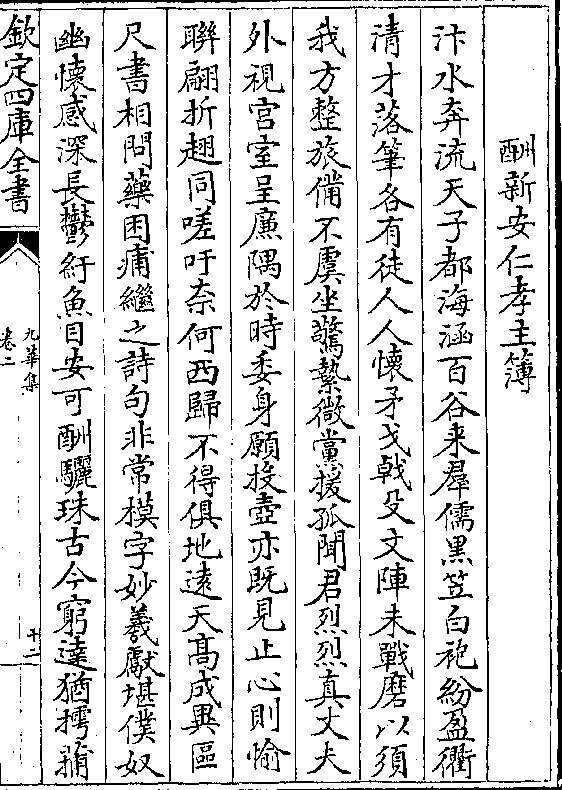 酬新安仁孝主簿
汴水奔流天子都海涵百谷来羣儒黑笠白袍紛盈衢
清才落筆各有徒人人懷矛戈戟殳文陣未戰磨以須
我方整旅備不虞坐驚縶微黨援孤聞君烈烈真丈夫
外視宫室呈廉隅於時委身願投壺亦既見止心則愉
聯翩折翅同嗟吁奈何西歸不得俱地逺天髙成異區
尺書相問藥困痡繼之詩句非常模字妙羲獻堪僕奴
幽懷感深長鬱紆魚目安可酬驪珠古今窮達猶摴蒱
欽定四庫全書
九華集
卷二
十二